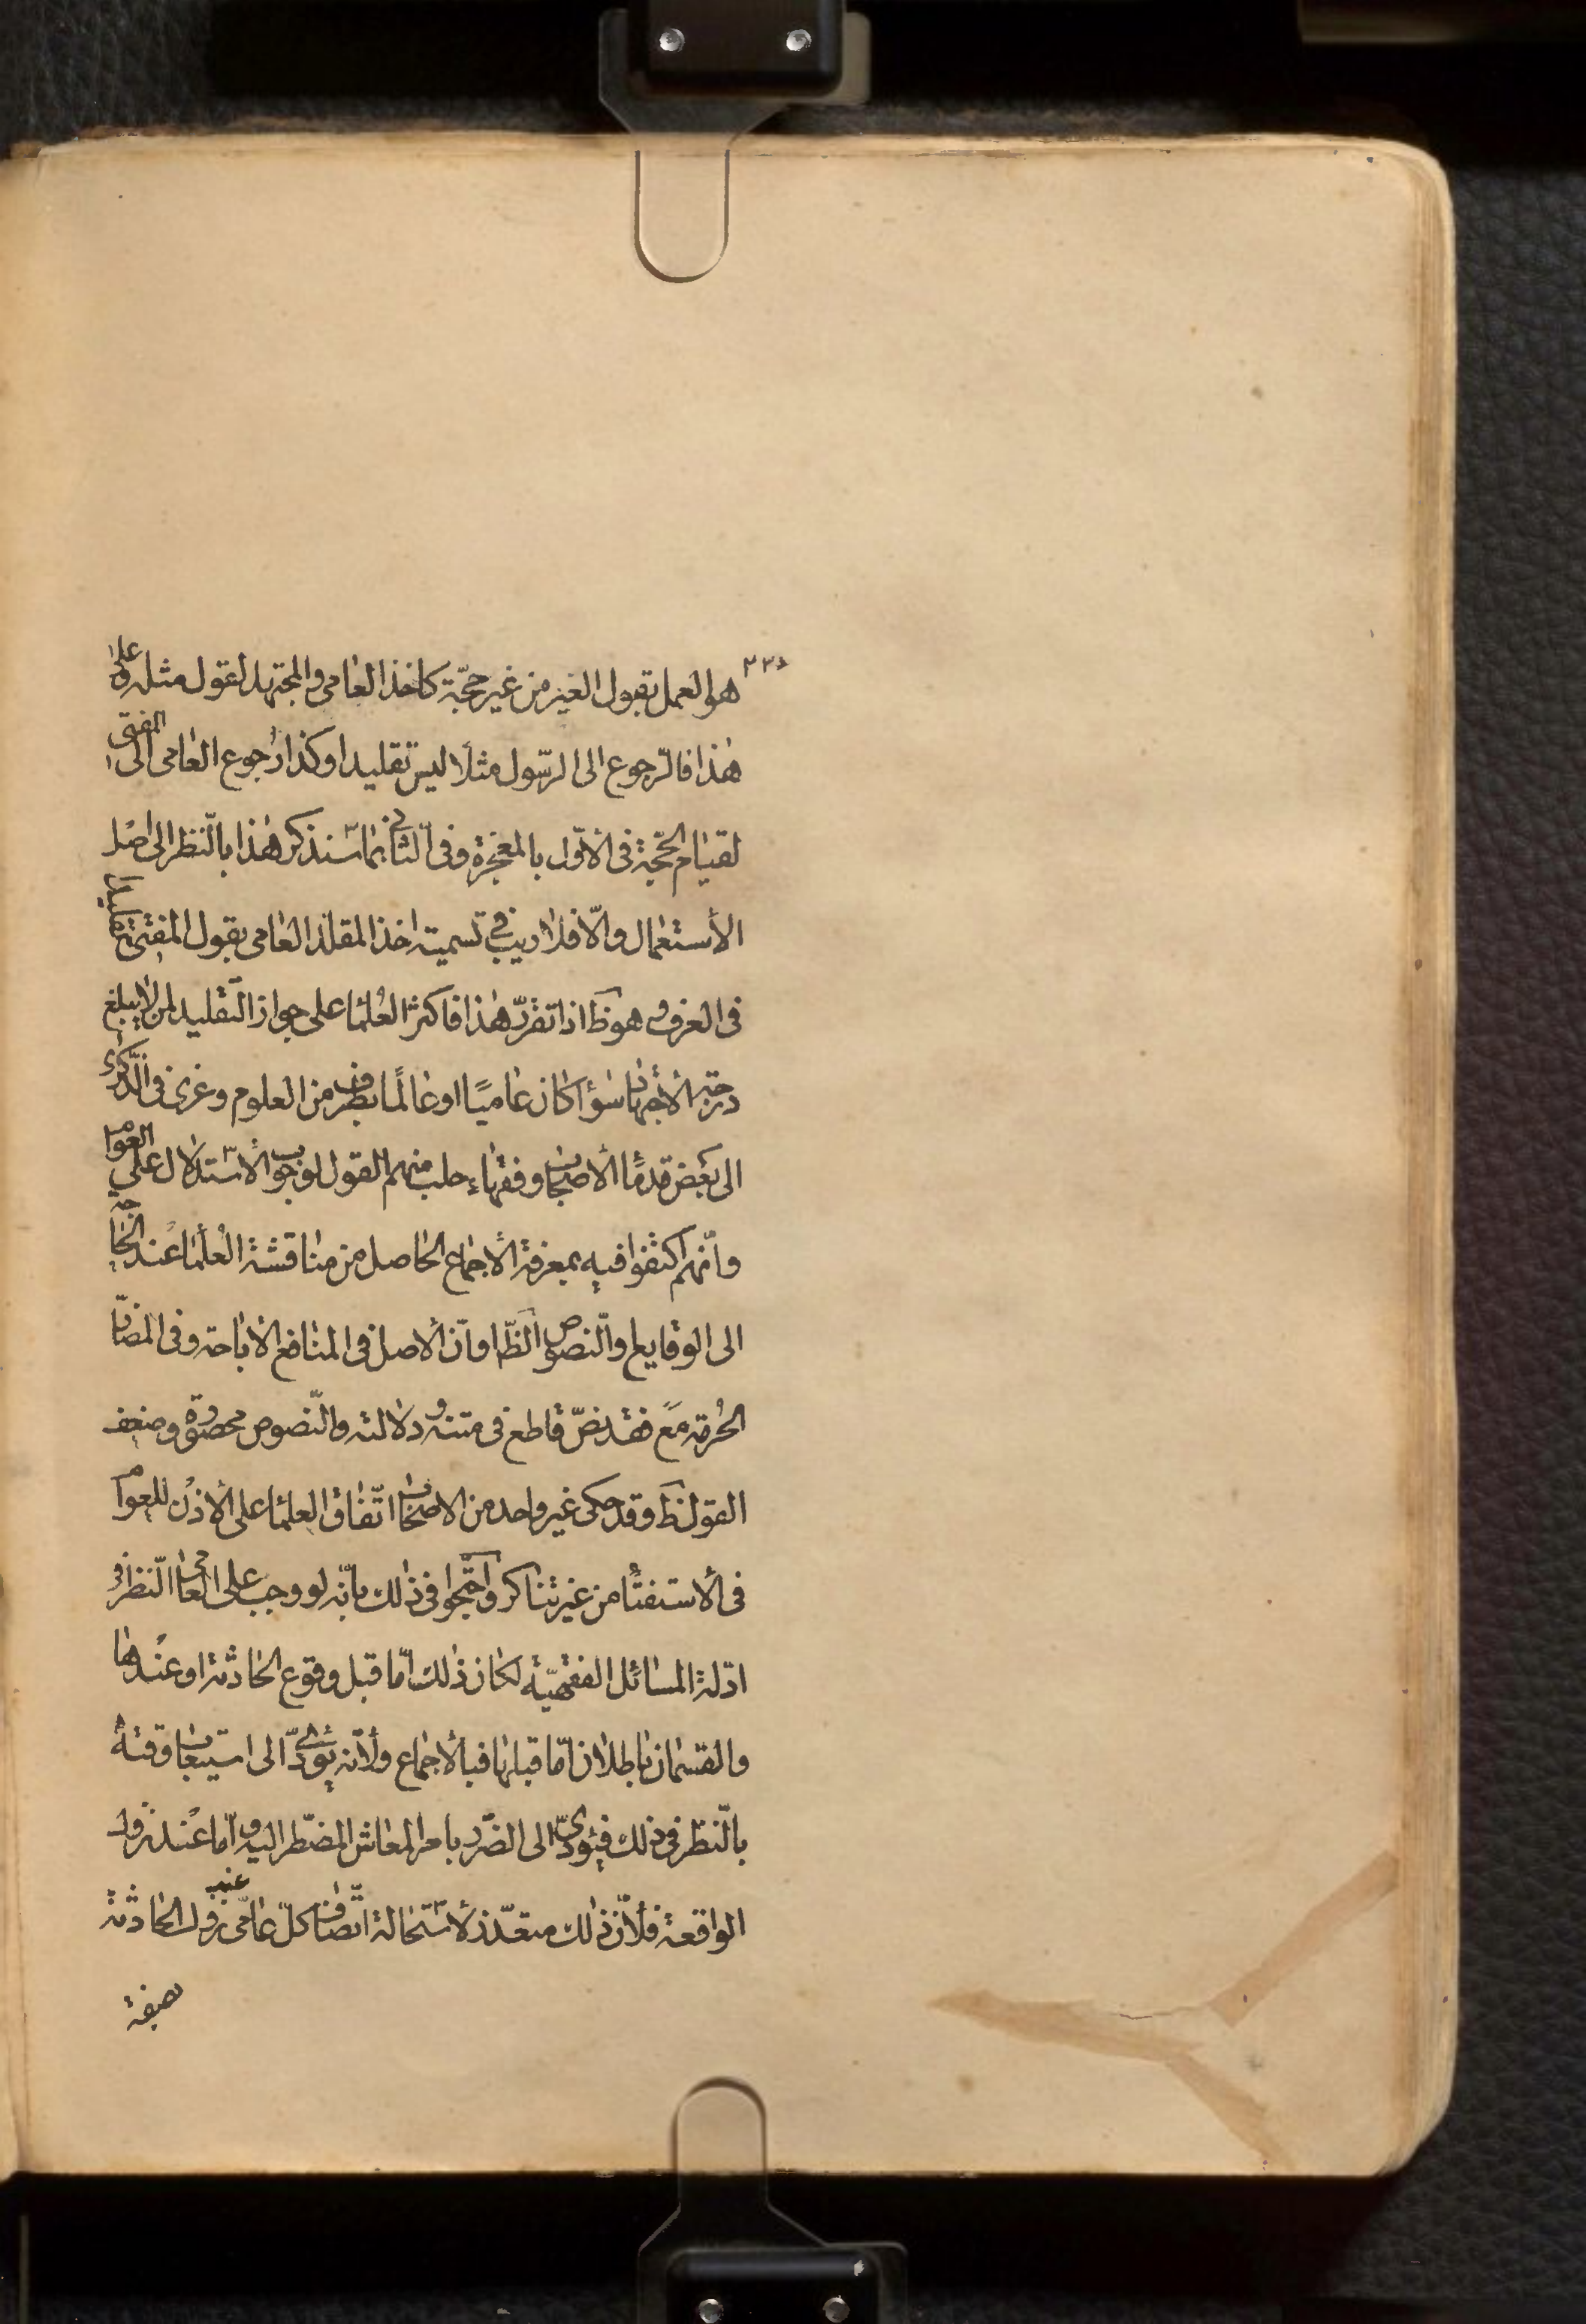 هو العمل بقول الغير من غير حجّة كاخذ العامى والمجتهد بقول مثله وعلى
هذا فالرّجوع الى الرّسول مثلا ليس تقليدا وكذا رجوع العامى الى المفتى
لقيام الحجّة فى الأوّل بالمعجزة وفى الثّانى بما سنذكر هذا بالنّظر الى اصل
الأستعمال والّا فلا ريب فى تسمية اخذ المقلد العامى بقول المفتى تقليدا
فى العرف وهو ظ اذا تقرّر هذا فاكثر العلماء على جواز التّقليد لمن لا يبلغ
درجة الأجتهاد سواء كان عاميّا او عالمًا بطرف من العلوم وعزى فى الذّكرى
الى بعض قدماء الأصحاب وفقهاء حلب منهم القول بوجوب الأستدلال على العوام
وانّهم اكتفوا فيه بمعرفة الأجماع الحاصل من مناقشة العلماء عند الحاجة
الى الوقايع والنّصوص الظّا وانّ الأصل فى المنافع الأباحة وفى المضارّ
الحرمة مع فقد نصّ قاطع فى متنه ودلالته والنّصوص محصورة وضعف
القول ظ وقد حكى غير واحد من الاصحاب اتّفاق العلماء على الأذن للعوام
فى الأستفتاء من غير تناكر واحتجّوا فى ذلك بانّه لو وجب على العامى النّظر فى
ادّلة المسائل الفقهيّة لكان ذلك امّا قبل وقوع الحادثة او عندها
والقسمان باطلان امّا قبلها فبالأجماع ولأنّه يؤدّى الى استيعاب وقته
بالنّظر فى ذلك فيؤدّى الى الضّرر بامر المعاش المضطر اليه وامّا عند نزول
الواقعة فلأنّ ذلك متعذّر لأستحالة اتّصاف كلّ عامّى عند نزول الحادثة
بصفة